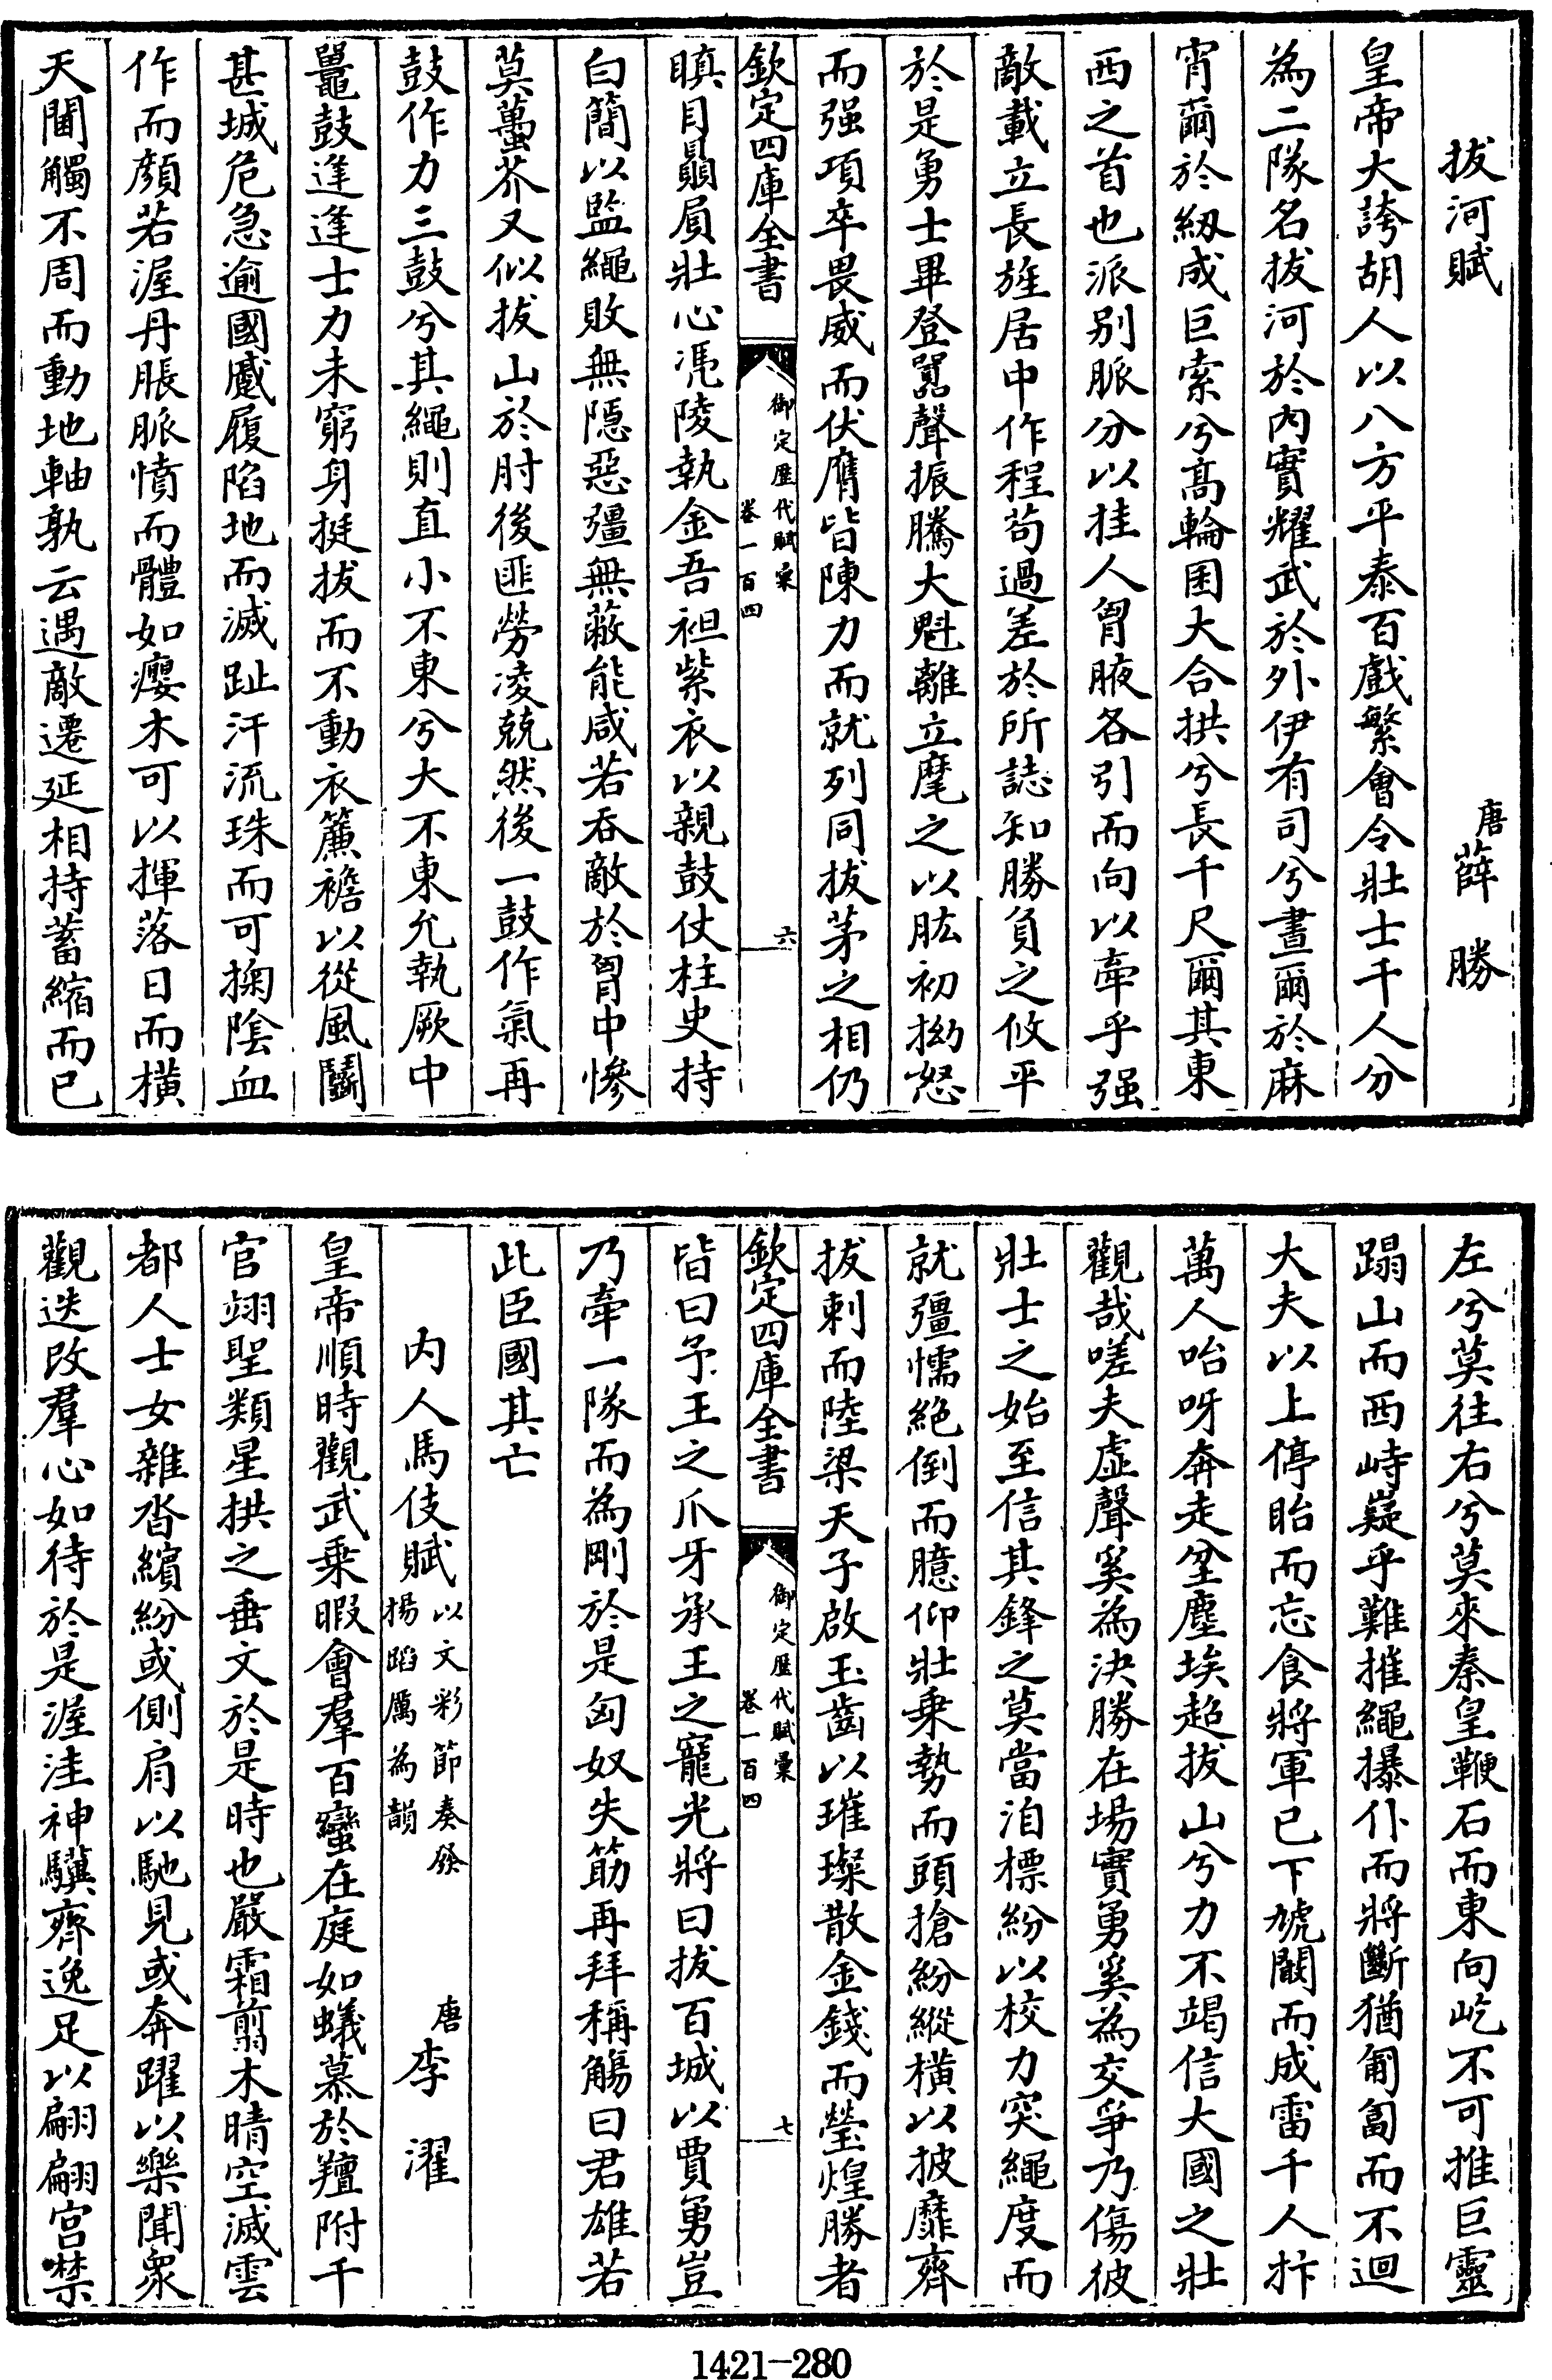 拔河賦
唐薛勝
皇帝大誇胡人以八方平泰百戲繁會令壯士千人分
為二隊名拔河於內實耀武於外伊有司兮晝爾於麻
宵薾於紉成巨索兮高輪囷大合拱兮長千尺爾其東
西之首也派別脈分以挂人胷腋各引而向以牽乎强
敵載立長旌居中作程苟過差於所誌知勝負之攸平
於是勇士畢登囂聲振騰大魁離立麾之以肱初拗怒
而强項卒畏威而伏膺皆陳力而就列同拔茅之相仍
欽定四庫全書
御定歷代賦彙
卷一百四
六
瞋目贔屓壯心馮陵執金吾袒紫衣以親鼓仗柱史持
白簡以監繩敗無隱惡彊無蔽能咸若吞敵於胷中慘
莫蠆芥又似拔山於肘後匪勞凌兢然後一鼓作氣再
鼓作力三鼓兮其繩則直小不東兮大不東允執厥中
鼉鼓逢逢士力未窮身挺拔而不動衣簾襜以從風鬭
甚城危急逾國蹙履陷地而滅趾汗流珠而可掬陰血
作而顏若渥丹脹脈憤而體如癭木可以揮落日而橫
天闉觸不周而動地軸孰云遇敵遷延相持蓄縮而已
左兮莫往右兮莫來秦皇鞭石而東向屹不可推巨靈
蹋山而西峙嶷乎難摧繩㩧仆而將斷猶匍匐而不迴
大夫以上停眙而忘食將軍已下虓闞而成雷千人抃
萬人咍呀奔走坌塵埃超拔山兮力不竭信大國之壯
觀哉嗟夫虛聲奚為決勝在場實勇奚為交爭乃傷彼
壯士之始至信其鋒之莫當洎標紛以校力突繩度而
就彊懦絕倒而臆仰壯乗勢而頭搶紛縱橫以披靡齊
拔剌而陸梁天子啟玉齒以璀璨散金錢而瑩煌勝者
欽定四庫全書
御定歷代賦彙
卷一百四
七
皆曰予王之爪牙承王之寵光將曰拔百城以賈勇豈
乃牽一隊而為剛於是匈奴失筯再拜稱觴曰君雄若
此臣國其亡
內人馬伎賦以文彩節奏發
揚蹈厲為韻
唐李濯
皇帝順時觀武乗暇會羣百蠻在庭如蟻慕於羶附千
官翊聖類星拱之垂文於是時也嚴霜翦木晴空滅雲
都人士女雜沓繽紛或側肩以馳見或奔躍以樂聞衆
觀迭改羣心如待於是渥洼神驥齊逸足以翩翩宮禁
1421—280